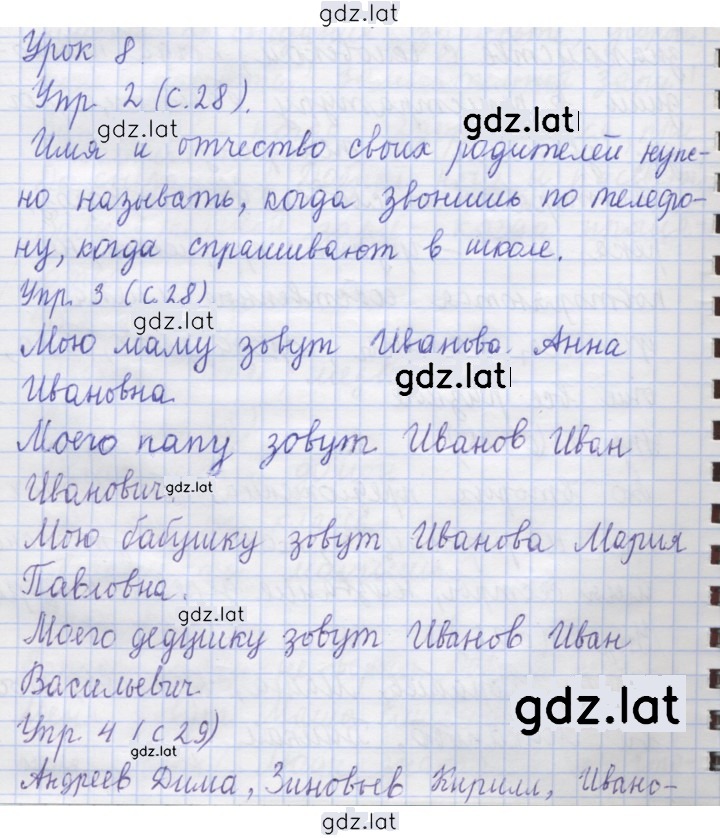 gdz.lat
Урок 8.
Упр. 2 (с.28).
gdz.lat
gdz.lat
Имя и отчество своих родителей нуж-
но называть, когда звонишь по телефо-
ну, когда спрашивают в школе.
Упр. 3 (с.28)
gdz.lat
Мою маму зовут Иванова Анна
gdz.lat
Ивановна.
Моего папу зовут Иванов Иван
Иванович.
gdz.lat
Мою бабушку зовут Иванова Мария
Павловна.
gdz.lat
Моего дедушку зовут Иванов Иван
Васильевич
gdz.lat
Упр. 4 (с 29)
gdz.lat
Андреев Дима, Зиновьев Кирилл, Ивано-
gdz.lat